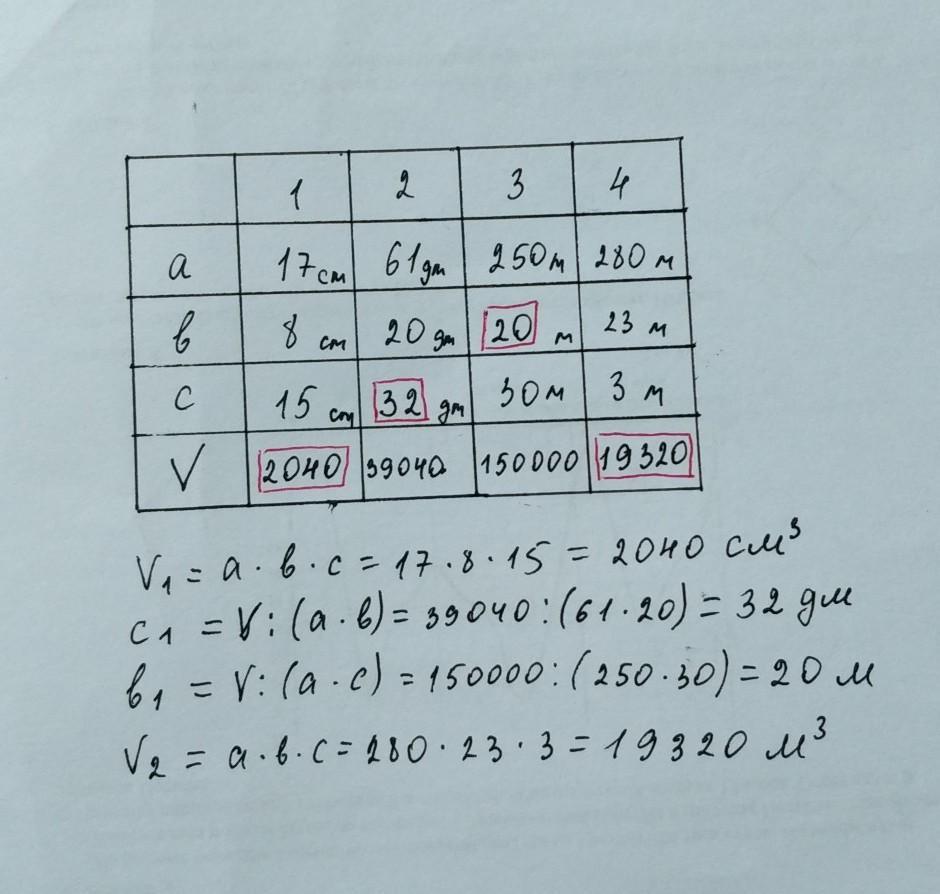 1 2 3 4
a 17 см 61 дм 250 м 280 м
b 8 см 20 дм 20 м 23 м
c 15 см 32 дм 30 м 3 м
V 2040 39040 150000 19320
V₁ = a · b · c = 17 · 8 · 15 = 2040 см³
c₁ = V : (a · b) = 39040 : (61 · 20) = 32 дм
b₁ = V : (a · c) = 150000 : (250 · 30) = 20 м
V₂ = a · b · c = 280 · 23 · 3 = 19320 м³